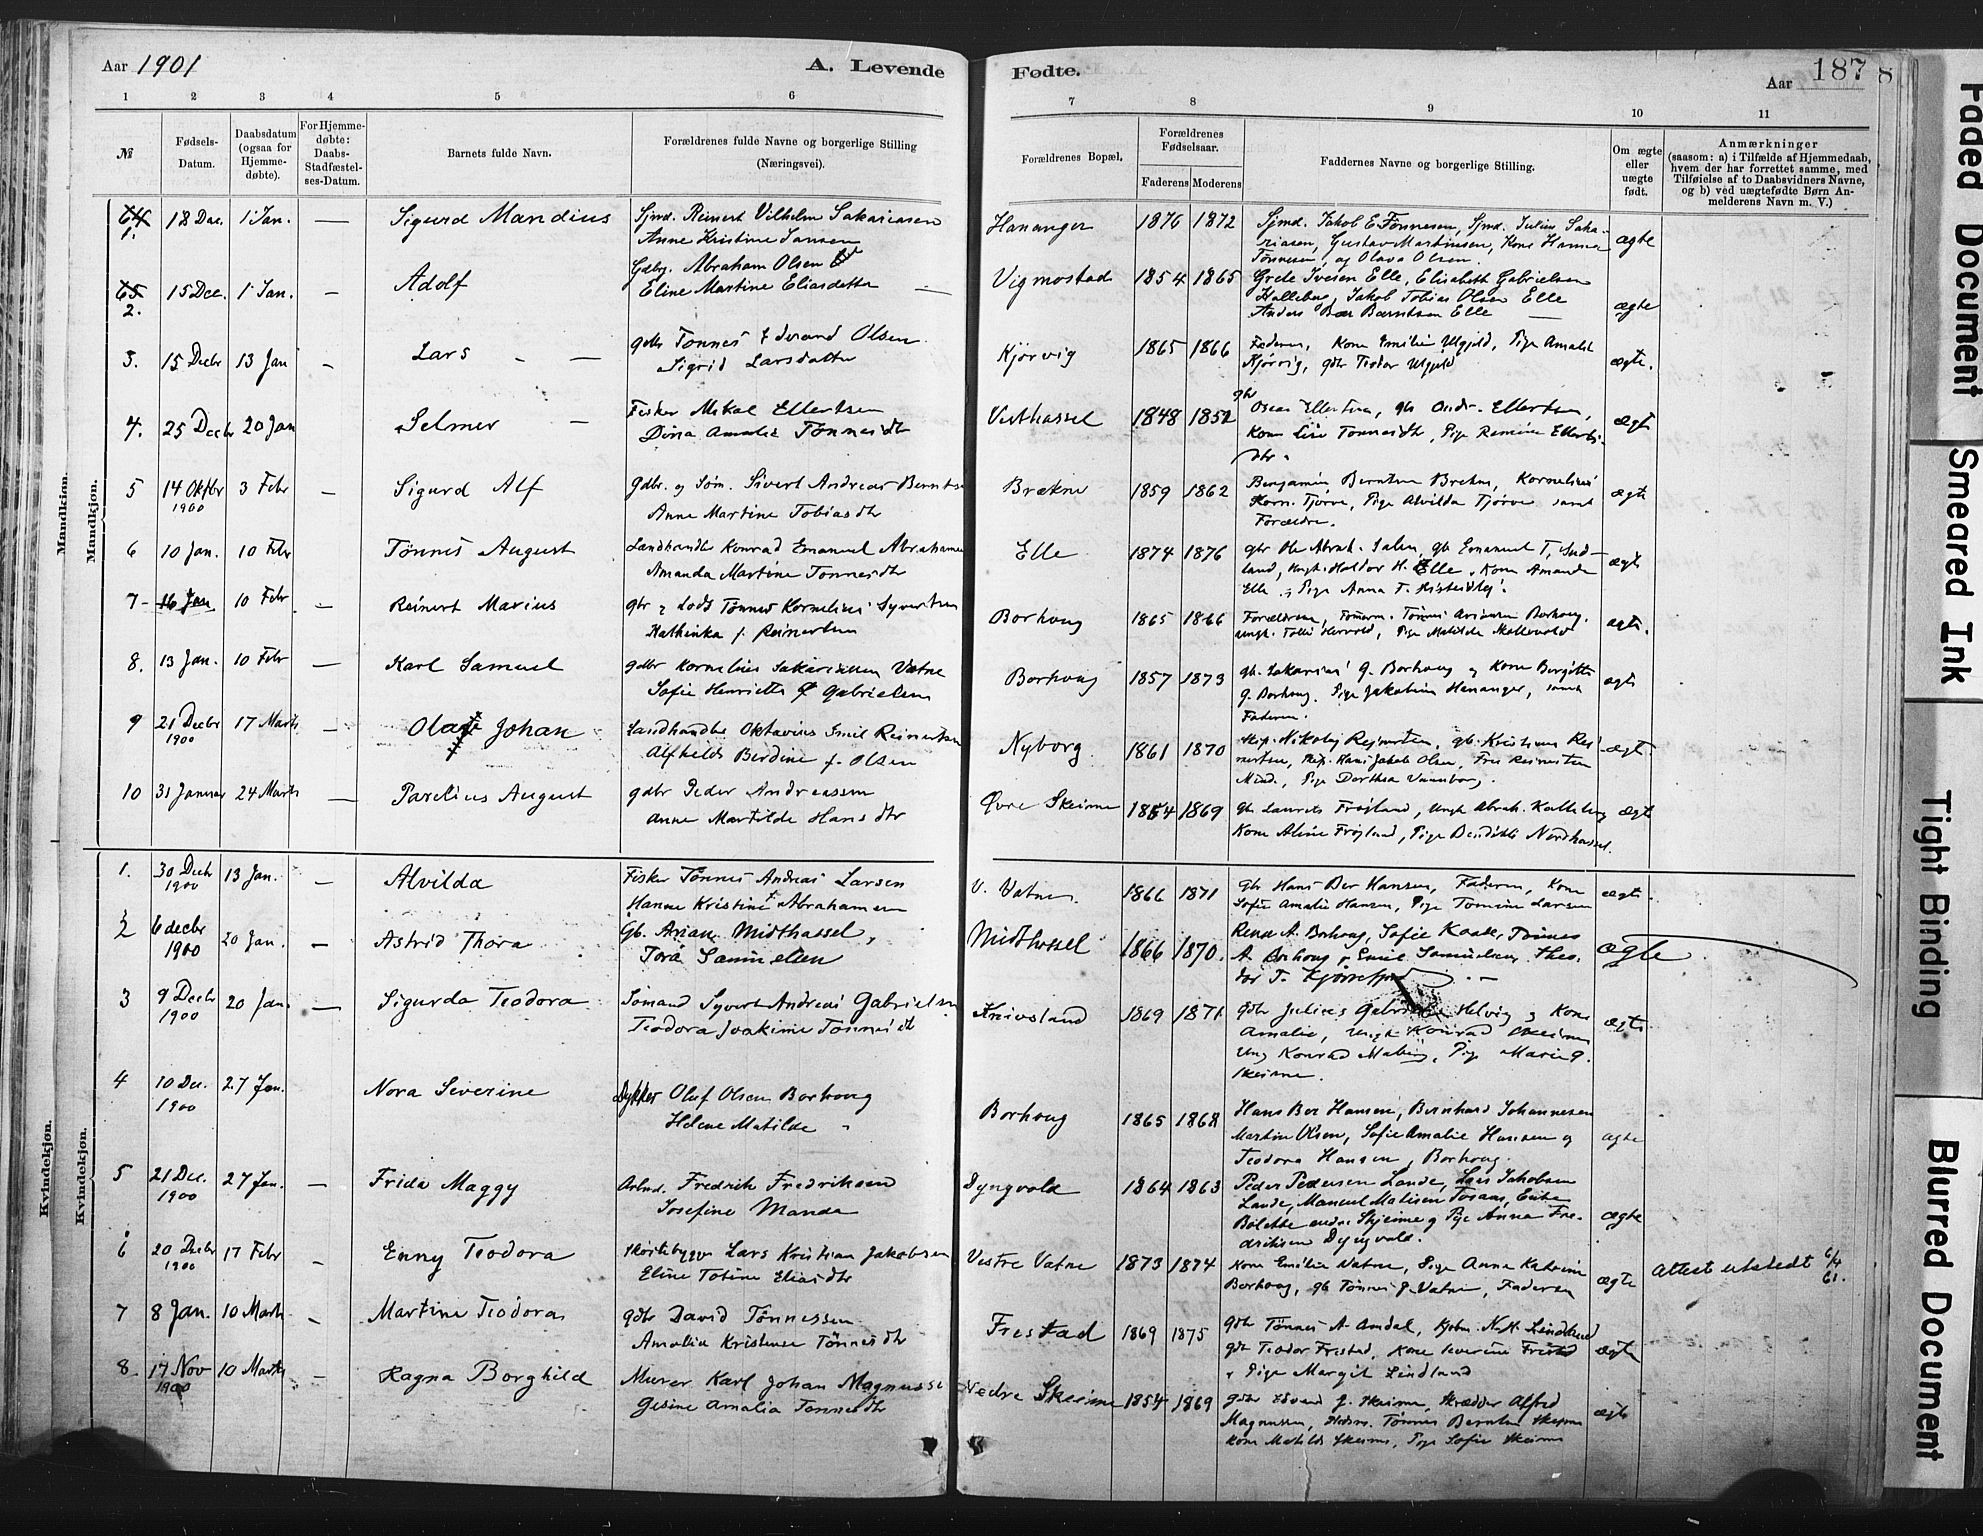 Aar 1901
A. Levende
Fødte.
Aar 187 8
1 2 3 4 5 6 7 8 9 10 11
№
Fødsels-
Datum.
Daabsdatum
(ogsaa for
Hjemme-
døbte).
For Hjemme-
døbte:
Daabs-
Stadfæstel-
ses-Datum.
Barnets fulde Navn.
Forældrenes fulde Navne og borgerlige Stilling
(Næringsvei).
Forældrenes Bopæl.
Forældrenes
Fødselsaar.
Faderens Moderens
Faddernes Navne og borgerlige Stilling.
Om ægte
eller
uægte
født.
Anmærkninger
(saasom: a) i Tilfælde af Hjemmedaab,
hvem der har forrettet samme, med
Tilføielse af to Daabsvidners Navne,
og b) ved uægtefødte Børn An-
melderens Navn m. V.)
Mandkjøn.
Mandkjøn.
64
1. 18 Dec. 1 Jan. — Sigurd Mandius
Sjmd. Reinert Vilhelm Sakariasen
Anne Kristine Jansen
Hananger 1876 1872
Sjmd. Jakob E Tønnesen, Sjmd. Julius Saka-
riasen, Gustav Martinsen, Kone Hanna
Tønnesen, og Olava Olsen.
ægte
65
2. 15 Dec. 1 Jan. — Adolf
Gdbr. Abraham Olsen
Eline Martine Eliasdatter —
Vigmostad 1854 1865
Grete Ivesen Elle, Elisabeth Gabrielsen
Kalleberg, Jakob Tobias Olsen Elle
Anders Bær Berntsen Elle —
ægte
3. 15 Decbr 13 Jan — Lars - -
gdbr Tønnes Edvard Olsen
Sigrid Larsdatter
Kjørvig 1865 1866
Faderen, Kone Emilie Ulgjeld, Pige Amalie
Kjørvig, gdbr Teodor Ulgjeld
ægte.
4. 25 Decbr 20 Jan Selmer —
Fisker Mikal Ellertsen
Dina Amalie Tønnesdtr
Vesthassel 1848 1852
gbr Oscar Ellertsen, gbr Andr. Ellertsen,
Kone Lise Tønnesdtr, Pige Ramine Ellerts-
dtr.
ægte
5 14 Oktbr 3 Febr — Sigurd Alf
1900
Gdbr. og Søm. Sivert Andreas Berntsen
Anne Martine Tobiasdtr
Brekne 1859 1862
Benjamin Berntsen Brekne, Kornelius
Korn. Tjørve, Pige Alvilda Tjørve samt
Forældre.
ægte
6 10 Jan. 10 Febr — Tønnes August
Landhandler Konrad Emanuel Abrahamsen
Amanda Martine Tønnesdtr
Elle 1874 1876
gbr Ole Abrah. Salen, gb Emanuel T. Sud-
land, Ungk. Haldor H. Elle, Kone Amanda
Elle, Pige Anna T.
ægte
7- 16 Jan 10 Febr — Reinert Marius
gbr og Lods Tønnes Kornelius Syvertsen
Kathinka f. Reinertsen
Borhoug 1865 1866
Forældrene, Tønnes Arianson Borhoug,
Ungk. Tolli Hervold, Pige Matilde
ægte.
8. 13 Jan. 10 Febr — Karl Samuel
gdbr Kornelius Sakariassen Vatne
Sofie Henriette G Gabrielsen
Borhoug 1857 1873
gb. Sakarias G. Borhoug og Kone Bergitte
G. Borhoug, Pige Jakobine Hananger, samt
Faderen.
ægte
9 21 Decbr 17 Marts — Olaf Johan
1900
Landhandler Oktavius Emil Reinertsen
Alfhilde Berdine f. Olsen
Nyborg 1861 1870
Skip. Nikolaj Reinertsen, gb. Kristian Rei-
nertsen, Skip. Hans Jakob Olsen, Fru Reinertsen
Mind., Pige Dorthea Vanneborg.
ægte
10 31 Januar 24 Marts — Parelius August
gdbr Peder Andreassen
Anne Martilde Hansdtr
Øvre Skeime 1854 1869
gb Laurits Frøiland, Ungk Abrah. Kalleberg
Kone Aline Frøiland, Pige Bendikte Nordhassel.
ægte
Kvindekjøn.
Kvindekjøn.
1. 30 Decbr 13 Jan. — Alvilda
1900
Fisker Tønnes Andreas Larsen
Hanne Kristine f Abrahamsen
V. Vatne. 1866 1871
gb Hans Ber Hansen, Faderen, Kone
Sofie Amalie Hansen, Pige Tomine Larsen
ægte.
2 6 decbr 20 Jan. — Astrid Thora
1900
Gb. Arian Midthassel,
Tora Samuelsen
Midthassel 1866 1870.
A. Borhoug, Sofie Kaabe, Tønnes
A. Borhoug & Emil Samuelsen, Theo-
dor T.
ægte
3 9 Decbr 20 Jan. — Sigurda Teodora
1900
Sømand Syvert Andreas Gabrielsen
Teodora Joakime Tønnesdt
Knivsland 1869 1871
gdbr Julius Gabriels Helvig og Kone
Amalie, Ungk Konrad Skeime
Ung Konrad , Pige Marie G.
Skeime.
ægte
4 10 Dec. 27 Jan. Nora Severine
1900
Dykker Oluf Olsen Borhoug
Helene Matilde "
Borhoug 1865 1868
Hans Ber Hansen, Bernhard Johannesen
Martin Olsen, Sofie Amalie Hansen og
Teodora Hansen, Borhoug.
ægte
5 21 Dec. 27 Jan. — Frida Maggy
1900
Arbmd. Fredrik Fredriksen
Josefine Manda
Dyngvold 1864 1863
Peder Pedersen Lande, Lars Jakobsen
Lande, Manuel Matisen Tosaas, Enke
Bolette Skjeime og Pige Anna Fre-
driksen Dyngvold.
ægte
6 20 Decbr 17 Febr — Enny Teodora
1900
Lars Kristian Jakobsen
Eline Totine Eliasdtr
Vestre Vatne 1873 1874
Kone Emilie Vatne, Pige Anna Katrine
Borhoug, gb Tønnes J. Vatne, Faderen
ægte
Attest utstedt 6/4
61.
7 8 Jan. 10 Marts — Martine Teodora
gdbr David Tønnessen
Amalia Kristense Tønnesdtr
Frestad 1869 1875
gdbr Tønnes A. Amdal, Kjøbm. N. H. Lindland
gdbr Teodor Frestad, Kone Severine Frestad
, Pige Margit Lindland
ægte
8. 17 Nov 10 Marts — Ragna Borghild
1900
Murer Karl Johan Magnussen
Gesine Amalia Tønnesdtr
Nedre Skeime 1854 1869
gdbr Edvard J. Skeime, Skrædder Alfred
Magnussen, Tønnes Berntsen Skeime
Kone Matilde Skeime, Pige Sofie Skeime
ægte
Faded Document
Smeared Ink
Tight Binding
Blurred Document